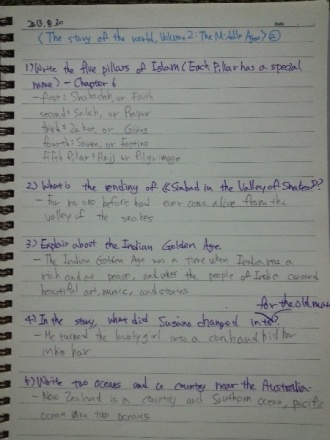 2013. 8. 30
Date
<The story of the world, Volume 2: The Middle Ages> ②
1) Write the five pillars of Islam (Each Pillar has a special
name) - Chapter 6
- first: Shahadah, or Faith
second: Salah, or Prayer
third: Zakat, or Giving
fourth: Sawm, or Fasting
Fifth Pillar: Hajj or Pilgrimage
2) What is the ending of 《Sinbad in the Valley of Snakes》?
- For no one before had ever come alive from the
valley of the snakes
3) Explain about the Indian Golden Age.
- The Indian Golden Age was a time when India was
rich and at peace, and when the people of India created
beautiful art, music, and stories
for the old man
4) In the story, what did Susano changed in to?
- He turned the lovely girl into a comb and hid her
in his hair
5) Write two oceans and a country near the Australia.
- New Zealand is a country and Southern ocean, pacific
ocean are two oceans